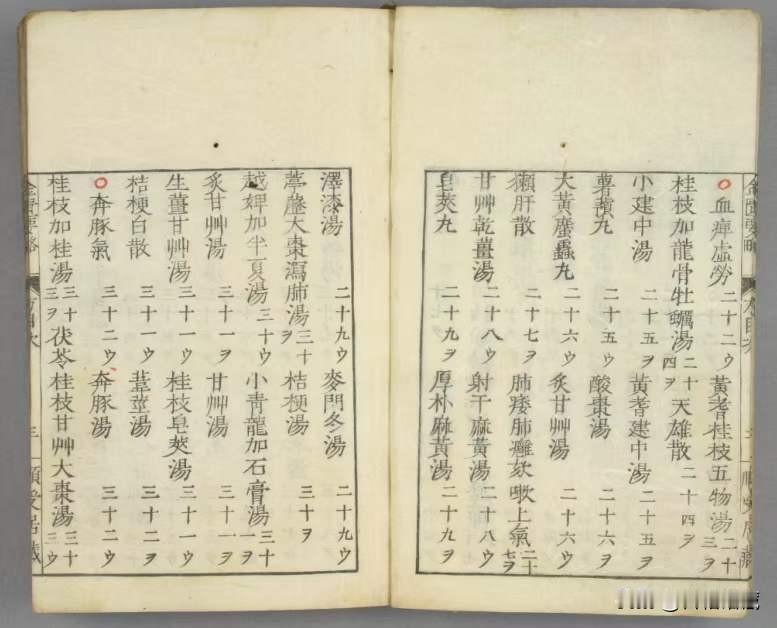 ○血痺虛勞 二十二ウ 黃耆桂枝五物湯 二十三ヲ
桂枝加龍骨牡蠣湯 二十四ヲ 天雄散 二十四ヲ
小建中湯 二十五ヲ 黃耆建中湯 二十五ヲ
薯蕷丸 二十五ウ 酸棗湯 二十六ヲ
大黃䗪蟲丸 二十六ウ 炙甘艸湯 二十六ウ
獺肝散 二十七ヲ 肺痿肺癰欬嗽上氣 二十七ヲ
甘艸乾薑湯 二十八ウ 射干麻黃湯 二十八ウ
皂莢丸 二十九ヲ 厚朴麻黃湯 二十九ヲ
澤漆湯 二十九ウ 麥門冬湯 二十九ウ
葶藶大棗瀉肺湯 三十ヲ 桔梗湯 三十ヲ
越婢加半夏湯 三十ウ 小青龍加石膏湯 三十一ヲ
炙甘艸湯 三十一ヲ 甘艸湯 三十一ヲ
生薑甘艸湯 三十一ウ 桂枝皂莢湯 三十一ウ
桔梗白散 三十一ウ 葦莖湯 三十二ヲ
○奔豚氣 三十二ウ 奔豚湯 三十二ウ
桂枝加桂湯 三十三ヲ 茯苓桂枝甘艸大棗湯 三十三ウ
金匱要略 方目次 三